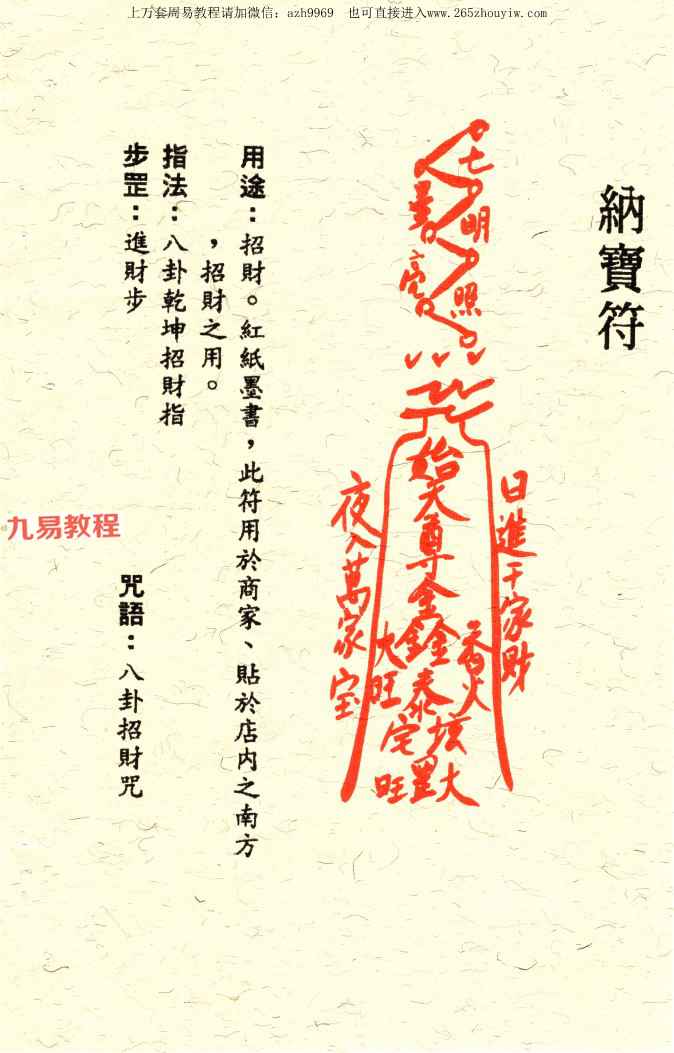 上万套周易教程请加微信：azh9969　也可直接进入www.265zhouyiw.com
納寶符
七
明
照
亮
日進千家財
始天尊金鑫泰
香火
大旺
夜入萬家宝
宅
旺罡大
用途：招財。紅紙墨書，此符用於商家、貼於店内之南方
，招財之用。
指法：八卦乾坤招財指
步罡：進財步
咒語：八卦招財咒
九易教程